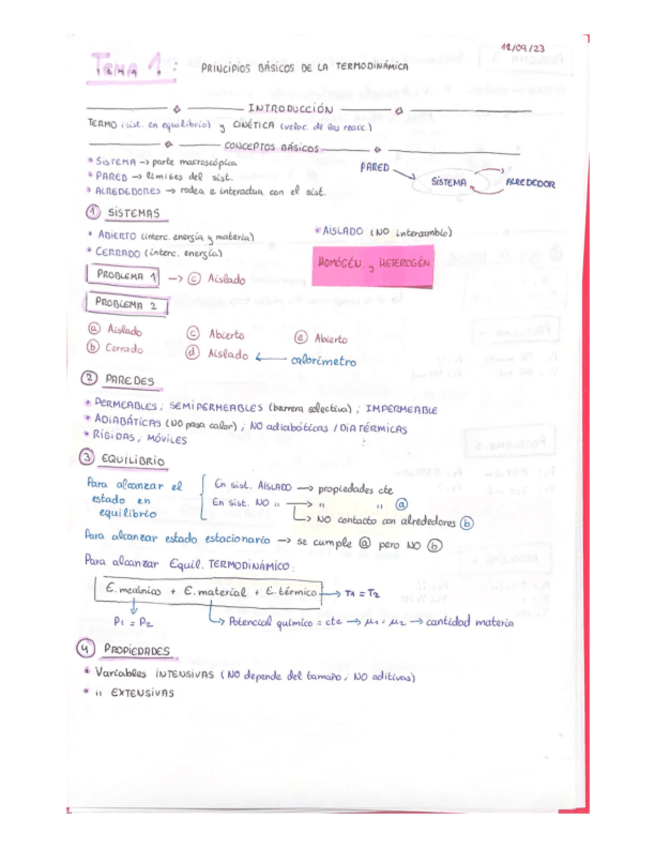 12/09/23
TEMA 1: PRINCIPIOS BÁSICOS DE LA TERMODINÁMICA
INTRODUCCIÓN
TERMO (sist. en equilibrio) y CINÉTICA (veloc. de las reacc.)
CONCEPTOS BÁSICOS
* SISTEMA → parte macroscópica
* PARED → límites del sist.
* ALREDEDORES → rodea e interactua con el sist.
PARED
SISTEMA
ALREDEDOR
① SISTEMAS
* ABIERTO (interc. energía y materia)
* CERRADO (interc. energía)
* AISLADO (NO intercambio)
HOMOGÉN y HETEROGÉN
PROBLEMA 1 → ⓒ Aislado
PROBLEMA 2
ⓐ Aislado ⓒ Abierto ⓔ Abierto
ⓑ Cerrado ⓓ Aislado ← calorímetro
② PAREDES
* PERMEABLES, SEMIPERMEABLES (barrera selectiva), IMPERMEABLE
* ADIABÁTICAS (NO pasa calor), NO adiabáticas / DIATÉRMICAS
* RÍGIDAS, MÓVILES
③ EQUILIBRIO
Para alcanzar el estado en equilibrio
En sist. AISLADO → propiedades cte
En sist. NO " → " " ⓐ
→ NO contacto con alrededores ⓑ
Para alcanzar estado estacionario → se cumple ⓐ pero NO ⓑ
Para alcanzar Equil. TERMODINÁMICO:
E. mecánico + E. material + E. térmico → T1 = T2
P1 = P2
→ Potencial químico = cte → μ1 = μ2 → cantidad materia
④ PROPIEDADES
* Variables INTENSIVAS (NO depende del tamaño, NO aditivas)
* " EXTENSIVAS